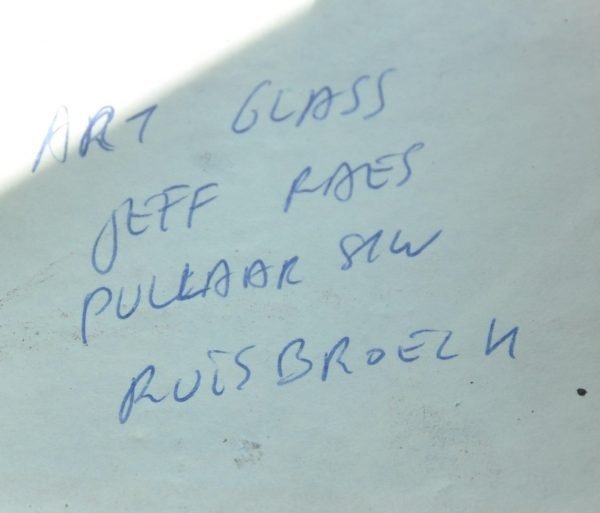 ART GLASS
JEFF RAES
PULLAAR STW
RUISBROEK